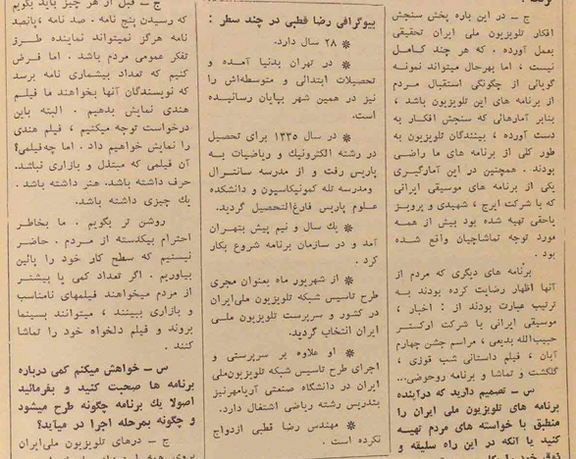 ج ـ در این باره پخش سنجش
افکار تلویزیون ملی ایران تحقیقی
بعمل آورده . که هر چند کامل
نیست ، اما بهرحال میتواند نمونه
گویائی از چگونگی استقبال مردم
از برنامه های این تلویزیون باشد ،
بنابر آمارهائی که سنجش افکار به
دست آورده ، بینندگان تلویزیون به
طور کلی از برنامه های ما راضی
بودند . همچنین در این آمارگیری
یکی از برنامه های موسیقی ایرانی
که با شرکت ایرج ، شهیدی و پرویز
یاحقی تهیه شده بود بیش از همه
مورد توجه تماشاچیان واقع شده
بود .
برنامه های دیگری که مردم از
آنها اظهار رضایت کرده بودند به
ترتیب عبارت بودند از : اخبار ،
موسیقی ایرانی با شرکت ارکستر
حبیب‌الله بدیعی ، مراسم جشن چهارم
آبان ، فیلم داستانی شب قوزی ،
گلگشت و تماشا و برنامه روحوضی...
س ـ تصمیم دارید که درآینده
برنامه های تلویزیون ملی ایران را
منطبق با خواسته های مردم تهیه
کنید یا آنکه در این راه سلیقه و
بیوگرافی رضا قطبی در چند سطر :
* ۲۸ سال دارد.
* در تهران بدنیا آمده و
تحصیلات ابتدائی و متوسطه‌اش را
نیز در همین شهر بپایان رسانیده
است.
* در سال ۱۳۳۵ برای تحصیل
در رشته الکترونیك و ریاضیات به
پاریس رفت و از مدرسه سانترال
ومدرسه تله کمونیکاسیون و دانشکده
علوم پاریس فارغ‌التحصیل گردید.
* یك سال و نیم پیش بتهران
آمد و در سازمان برنامه شروع بکار
کرد .
* از شهریور ماه بعنوان مجری
طرح تاسیس شبکه تلویزیون ملی‌ایران
در کشور و سرپرست تلویزیون ملی
ایران انتخاب گردید.
* او علاوه بر سرپرستی و
اجرای طرح تاسیس شبکه تلویزیون‌ملی
ایران در دانشگاه صنعتی آریامهرنیز
بتدریس رشته ریاضی اشتغال دارد.
* مهندس رضا قطبی ازدواج
نکرده است .
ج ـ قبل از هر چیز باید بگویم
که رسیدن پنج نامه . صد نامه ،پانصد
نامه هرگز نمیتواند نماینده طرق
تفکر عمومی مردم باشد . اما فرض
کنیم که تعداد بیشماری نامه برسد
که نویسندگان آنها بخواهند ما فیلم
هندی نمایش بدهیم . البته باین
درخواست توجه میکنیم ، فیلم هندی
را نمایش خواهیم داد . اما چه‌فیلمی؟
آن فیلمی که مبتذل و بازاری نباشد.
حرف داشته باشد. هنر داشته باشد .
یك چیزی داشته باشد.
روشن تر بگویم . ما بخاطر
احترام بیکدسته از مردم . حاضر
نیستیم که سطح کار خود را پائین
بیاوریم . اگر تعداد کمی یا بیشتر
از مردم میخواهند فیلمهای نامناسب
و بازاری ببینند ، میتوانند بسینما
بروند و فیلم دلخواه خود را تماشا
کنند .
س ـ خواهش میکنم کمی درباره
برنامه ها صحبت کنید و بفرمائید
اصولا یك برنامه چگونه طرح میشود
و چگونه بمرحله اجرا در میآید؟
ج ـ درهای تلویزیون ملی‌ایران